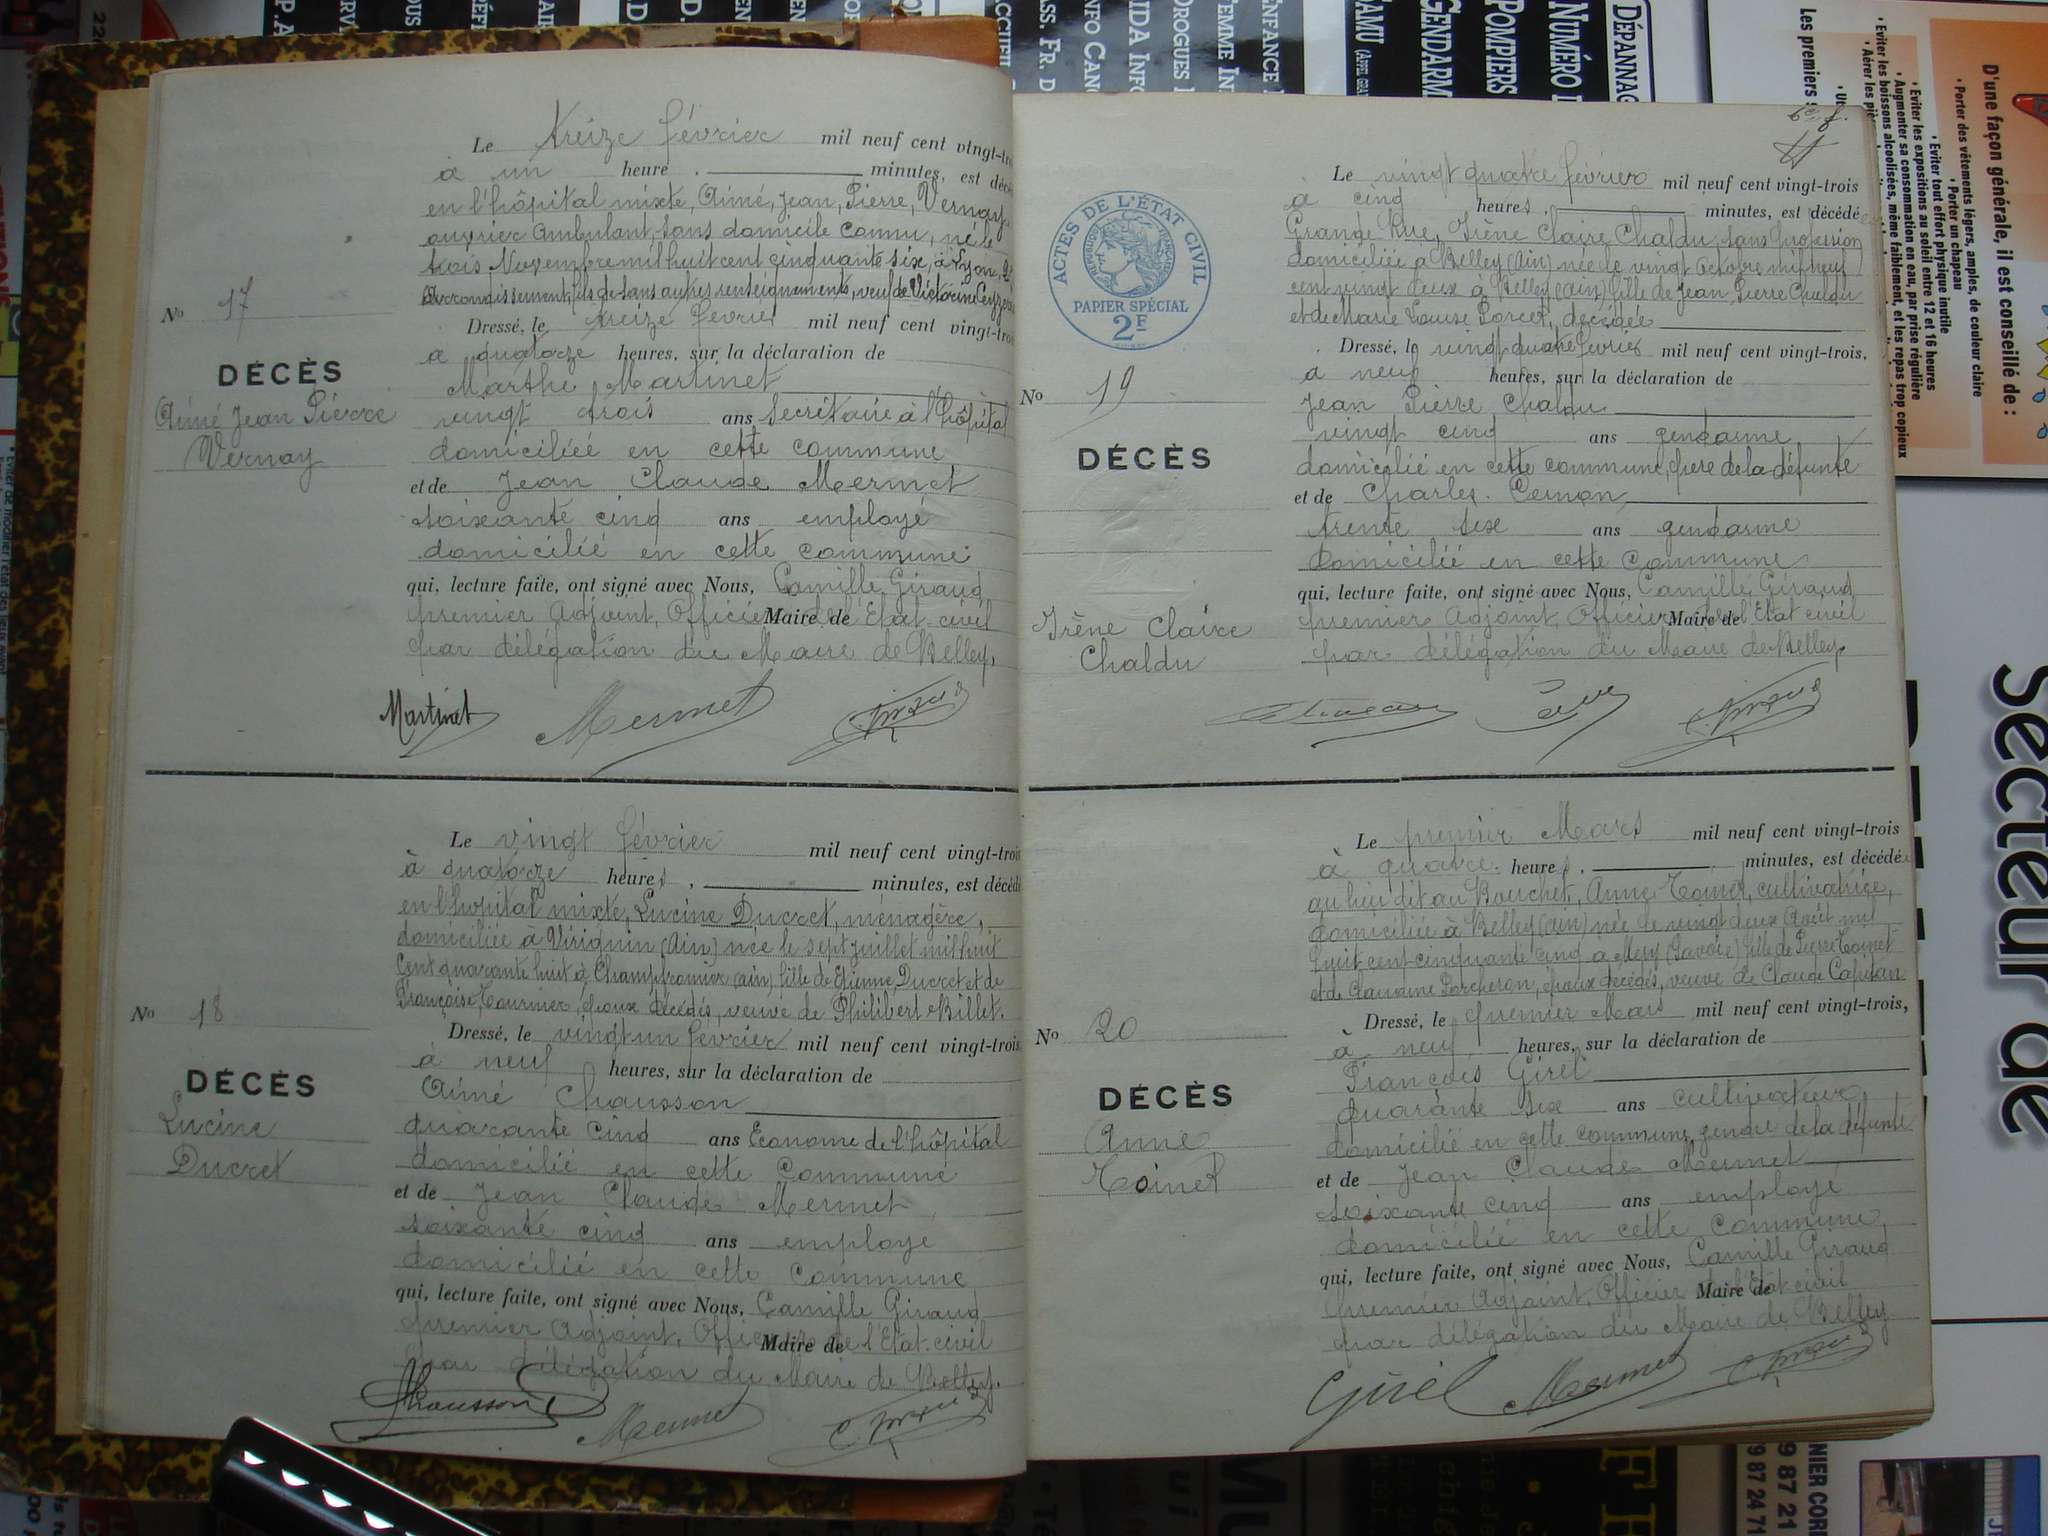 Le treize février mil neuf cent vingt-tr
à un heure, minutes, est décé
en l'hôpital mixte, Aimé, Jean, Pierre, Vernay
ouvrier ambulant, sans domicile connu, né le
trois Novembre mil huit cent cinquante six, à Lyon, 2e
Arrondissement, fils de sans autres renseignements, veuf de Victorine
No 17
Dressé, le treize février mil neuf cent vingt-trois
à quatorze heures, sur la déclaration de
DÉCÈS
Marthe Martinet
Aimé Jean Pierre
Vernay
vingt trois ans Secrétaire à l'hôpital
domiciliée en cette commune
et de Jean Claude Mermet
soixante cinq ans employé
domicilié en cette commune
qui, lecture faite, ont signé avec Nous, Camille Giraud
premier Adjoint, Officier Maire de de l'Etat-civil
par délégation du Maire de Belley,
Martinet Mermet
Le vingt février mil neuf cent vingt-trois
à quatorze heures, minutes, est décédé
en l'hôpital mixte, Lucine Ducret, ménagère,
domiciliée à Virignin (Ain) née le sept juillet mil huit
cent quarante huit à Champfromier (ain) fille de Etienne Ducret et de
Françoise Tournier, époux décédés, veuve de Philibert Billet.
No 18
Dressé, le vingt un février mil neuf cent vingt-trois
à neuf heures, sur la déclaration de
DÉCÈS
Lucine
Ducret
Aimé Chausson
quarante cinq ans Econome de l'hôpital
domicilié en cette commune
et de Jean Claude Mermet
soixante cinq ans employé
domicilié en cette commune
qui, lecture faite, ont signé avec Nous, Camille Giraud
premier Adjoint, Officier Maire de de l'Etat-civil
par délégation du Maire de Belley.
Chausson Mermet
ACTES DE L'ÉTAT CIVIL
RÉPUBLIQUE FRANÇAISE
PAPIER SPÉCIAL
2F
Le vingt quatre février mil neuf cent vingt-trois
à cinq heures, minutes, est décédée
Grande Rue, Irène Claire Chaldu, sans profession
domiciliée à Belley (Ain) née le vingt Octobre mil neuf
cent vingt deux à Belley (ain) fille de Jean Pierre Chaldu
et de Marie Louise Porcet, décédée
Dressé, le vingt quatre février mil neuf cent vingt-trois,
à neuf heures, sur la déclaration de
No 19
DÉCÈS
Irène Claire
Chaldu
Jean Pierre Chaldu
vingt cinq ans gendarme
domicilié en cette commune, père de la défunte
et de Charles Cernon,
trente six ans gendarme
domicilié en cette commune
qui, lecture faite, ont signé avec Nous, Camille Giraud
premier Adjoint, Officier Maire de de l'Etat civil
par délégation du Maire de Belley.
Le premier Mars mil neuf cent vingt-trois
à quatre heures, minutes, est décédée
au lieu dit au Bouchet, Anne Toinet, cultivatrice,
domiciliée à Belley (Ain) née le vingt deux Août mil
huit cent cinquante cinq à Mery (Savoie) fille de Pierre Toinet
et de Claudine Porcheron, époux décédés, veuve de Claude Capitan
Dressé, le premier Mars mil neuf cent vingt-trois,
à neuf heures, sur la déclaration de
No 20
DÉCÈS
Anne
Toinet
François Girel
quarante six ans cultivateur
domicilié en cette commune, gendre de la défunte
et de Jean Claude Mermet
soixante cinq ans employé
domicilié en cette commune
qui, lecture faite, ont signé avec Nous, Camille Giraud
premier Adjoint, Officier Maire de de l'Etat civil
par délégation du Maire de Belley
Girel Mermet
DÉPANNAG
POMPIERS
GENDARM
SAMU
Les premiers s
D'une façon générale, il est conseillé de :
• Porter des vêtements légers, amples, de couleur claire
• Porter un chapeau
• Eviter tout effort physique inutile
• Eviter les expositions au soleil entre 12 et 16 heures
• Augmenter sa consommation en eau, par prise régulière
• Eviter les boissons alcoolisées, même faiblement, et les repas trop copieux
• Aérer les piè
Secteur de
9 87 21
9 87 24 71